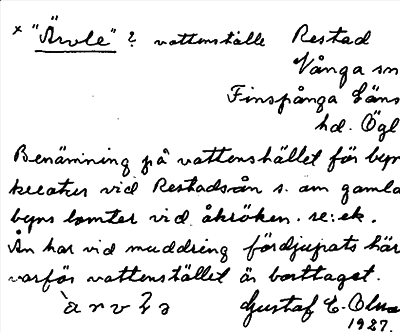 × "Ärvle" ? vattenställe Restad
Vånga sn
Finspånga läns
hd. Ögl
Benämning på vattenstället för byn
kreatur vid Restadsån s. om gamla
byns tomter vid åkröken. se: ek.
Ån har vid muddring fördjupats här
varför vattenstället är borttaget.
Gustaf E. Olss
1927.